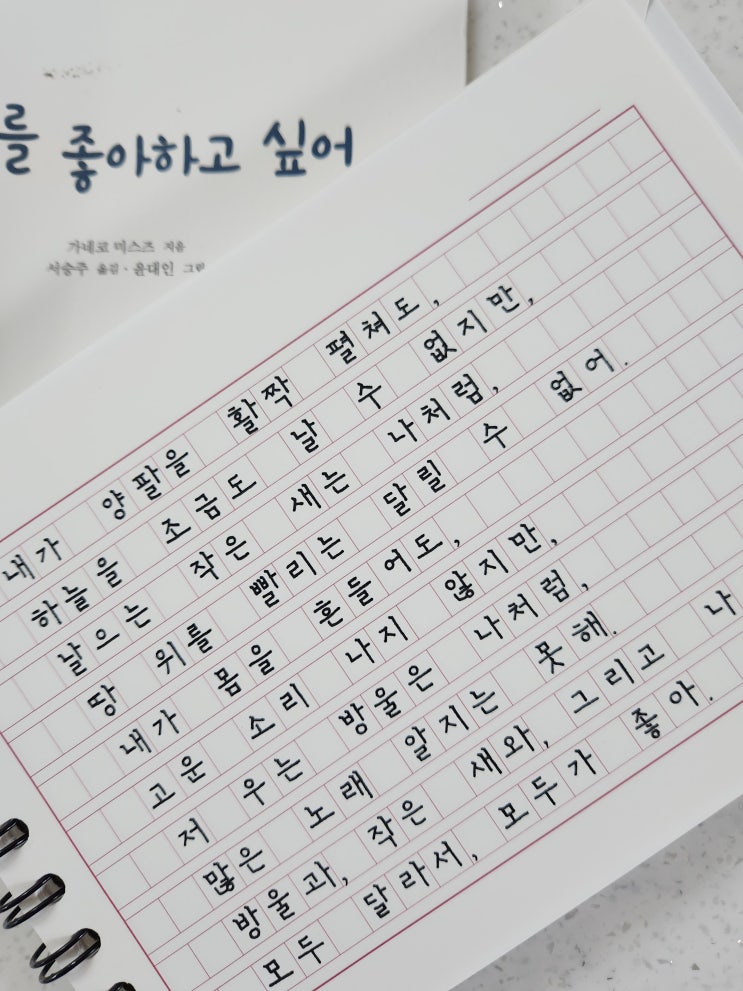 를 좋아하고 싶어
가네코 미스즈 지음
서승주 옮김·윤대인 그림
내가 양팔을 활짝 펼쳐도,
하늘을 조금도 날 수 없지만,
날으는 작은 새는 나처럼,
땅 위를 빨리는 달릴 수 없어.
내가 몸을 흔들어도,
고운 소리 나지 않지만,
저 우는 방울은 나처럼,
많은 노래 알지는 못해.
방울과, 작은 새와, 그리고 나
모두 달라서, 모두가 좋아.